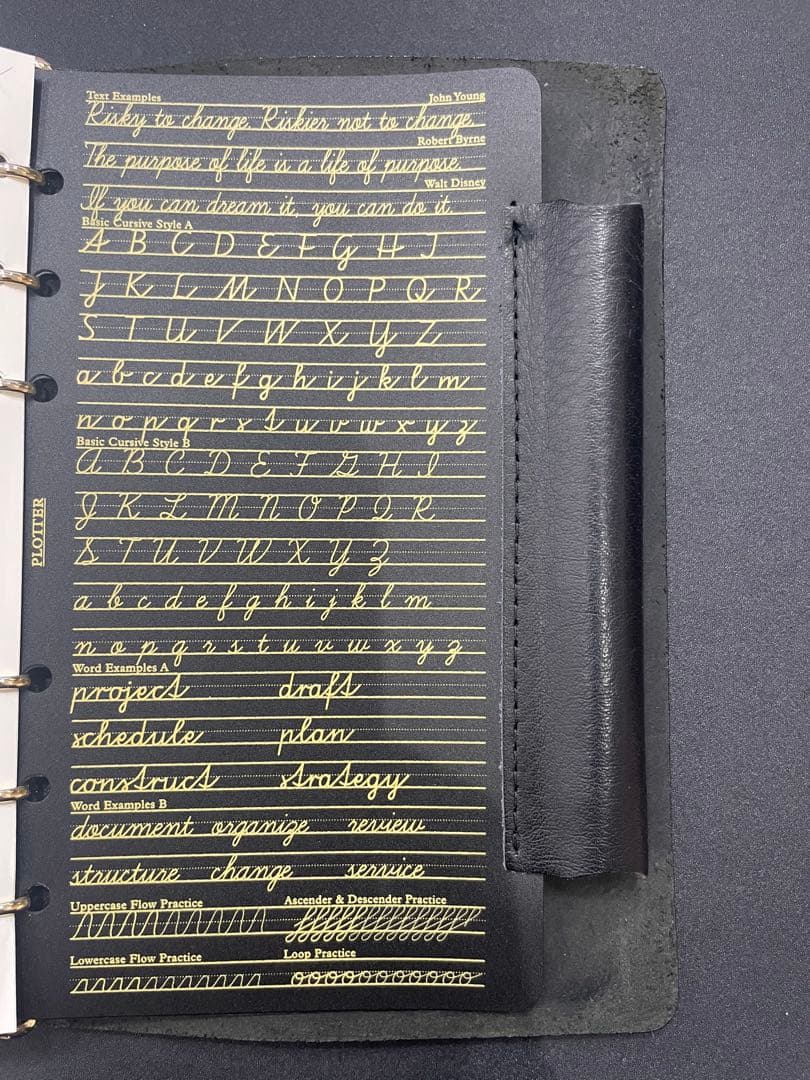 Text Examples John Young
Risky to change, Riskier not to change.
Robert Byrne
The purpose of life is a life of purpose.
Walt Disney
If you can dream it, you can do it.
Basic Cursive Style A
A B C D E F G H I
J K L M N O P Q R
S T U V W X Y Z
a b c d e f g h i j k l m
n o p q r s t u v w x y z
Basic Cursive Style B
A B C D E F G H I
J K L M N O P Q R
S T U V W X Y Z
a b c d e f g h i j k l m
n o p q r s t u v w x y z
PLOTTER
Word Examples A
project draft
schedule plan
construct strategy
Word Examples B
document organize review
structure change service
Uppercase Flow Practice Ascender & Descender Practice
Lowercase Flow Practice Loop Practice